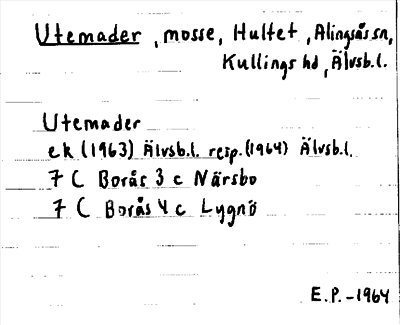 Utemader, mosse, Hultet, Alingsås sn,
Kullings hd, Älvsb.l.
Utemader
ek (1963) Älvsb.l. resp. (1964) Älvsb.l.
7 C Borås 3 c Närsbo
7 C Borås 4 c Lygnö
E.P. -1964